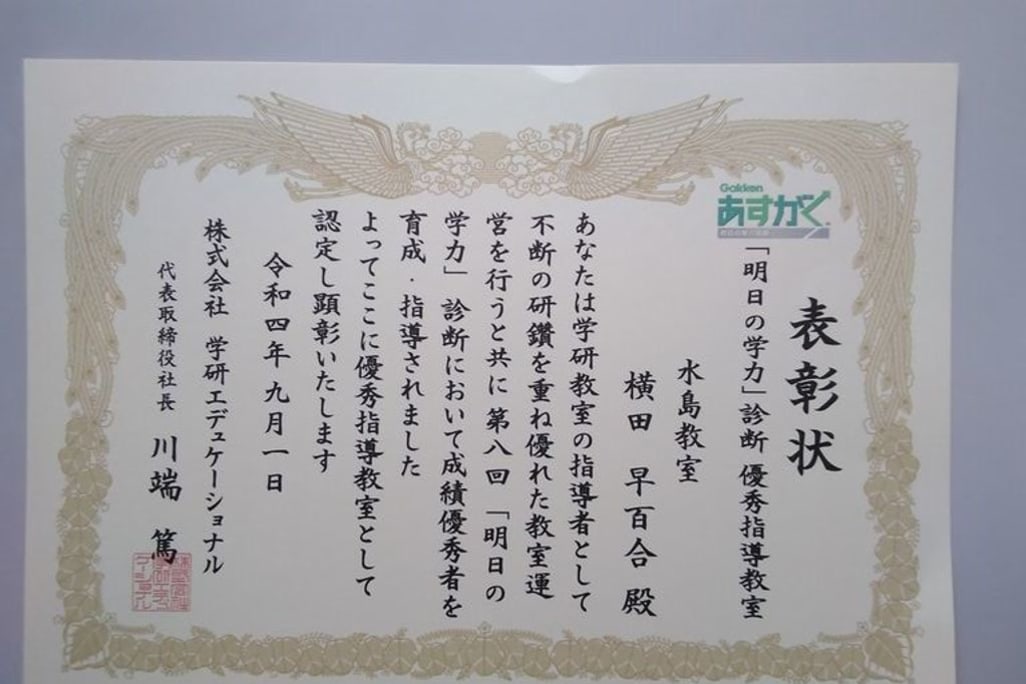 表彰状
Gakken
あすがく
「明日の学力」診断 優秀指導教室
水島教室
横田 早百合 殿
あなたは学研教室の指導者として
不断の研鑽を重ね優れた教室運
営を行うと共に 第八回 「明日の
学力」 診断において成績優秀者を
育成・指導されました
よってここに優秀指導教室として
認定し顕彰いたします
令和四年九月一日
株式会社 学研エデュケーショナル
代表取締役社長 川端 篤